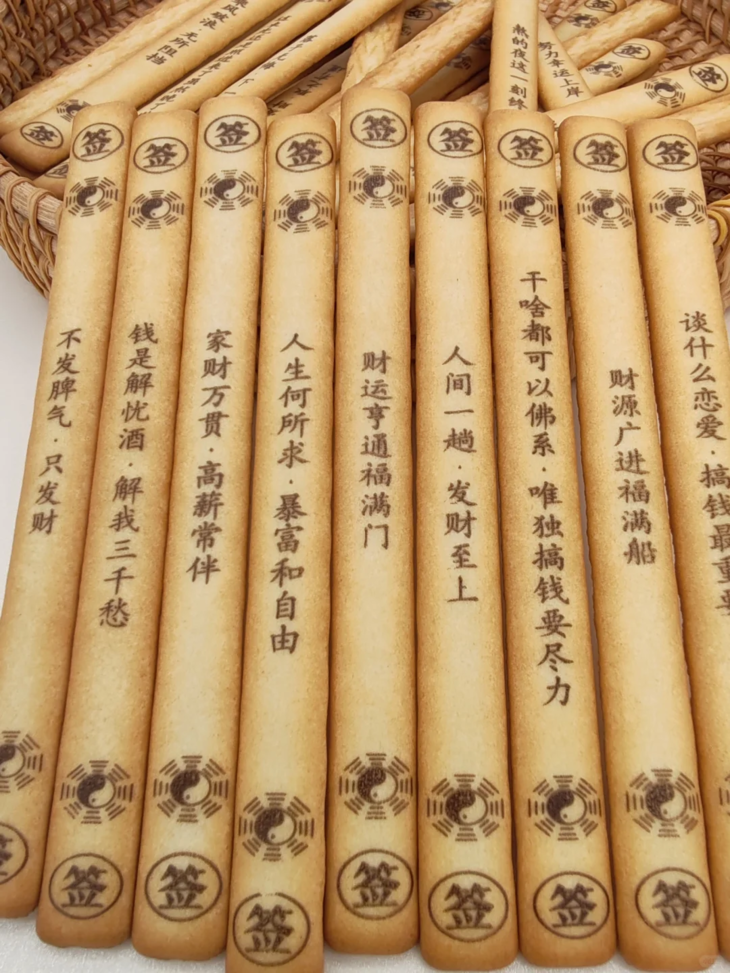 无所阻挡
熬的夜这一刻
努力幸运上岸
签
不发脾气·只发财
签
签
钱是解忧酒·解我三千愁
签
签
家财万贯·高薪常伴
签
签
人生何所求·暴富和自由
签
签
财运亨通福满门
签
签
人间一趟·发财至上
签
签
干啥都可以佛系·唯独搞钱要尽力
签
签
财源广进福满船
签
签
谈什么恋爱·搞钱最重要